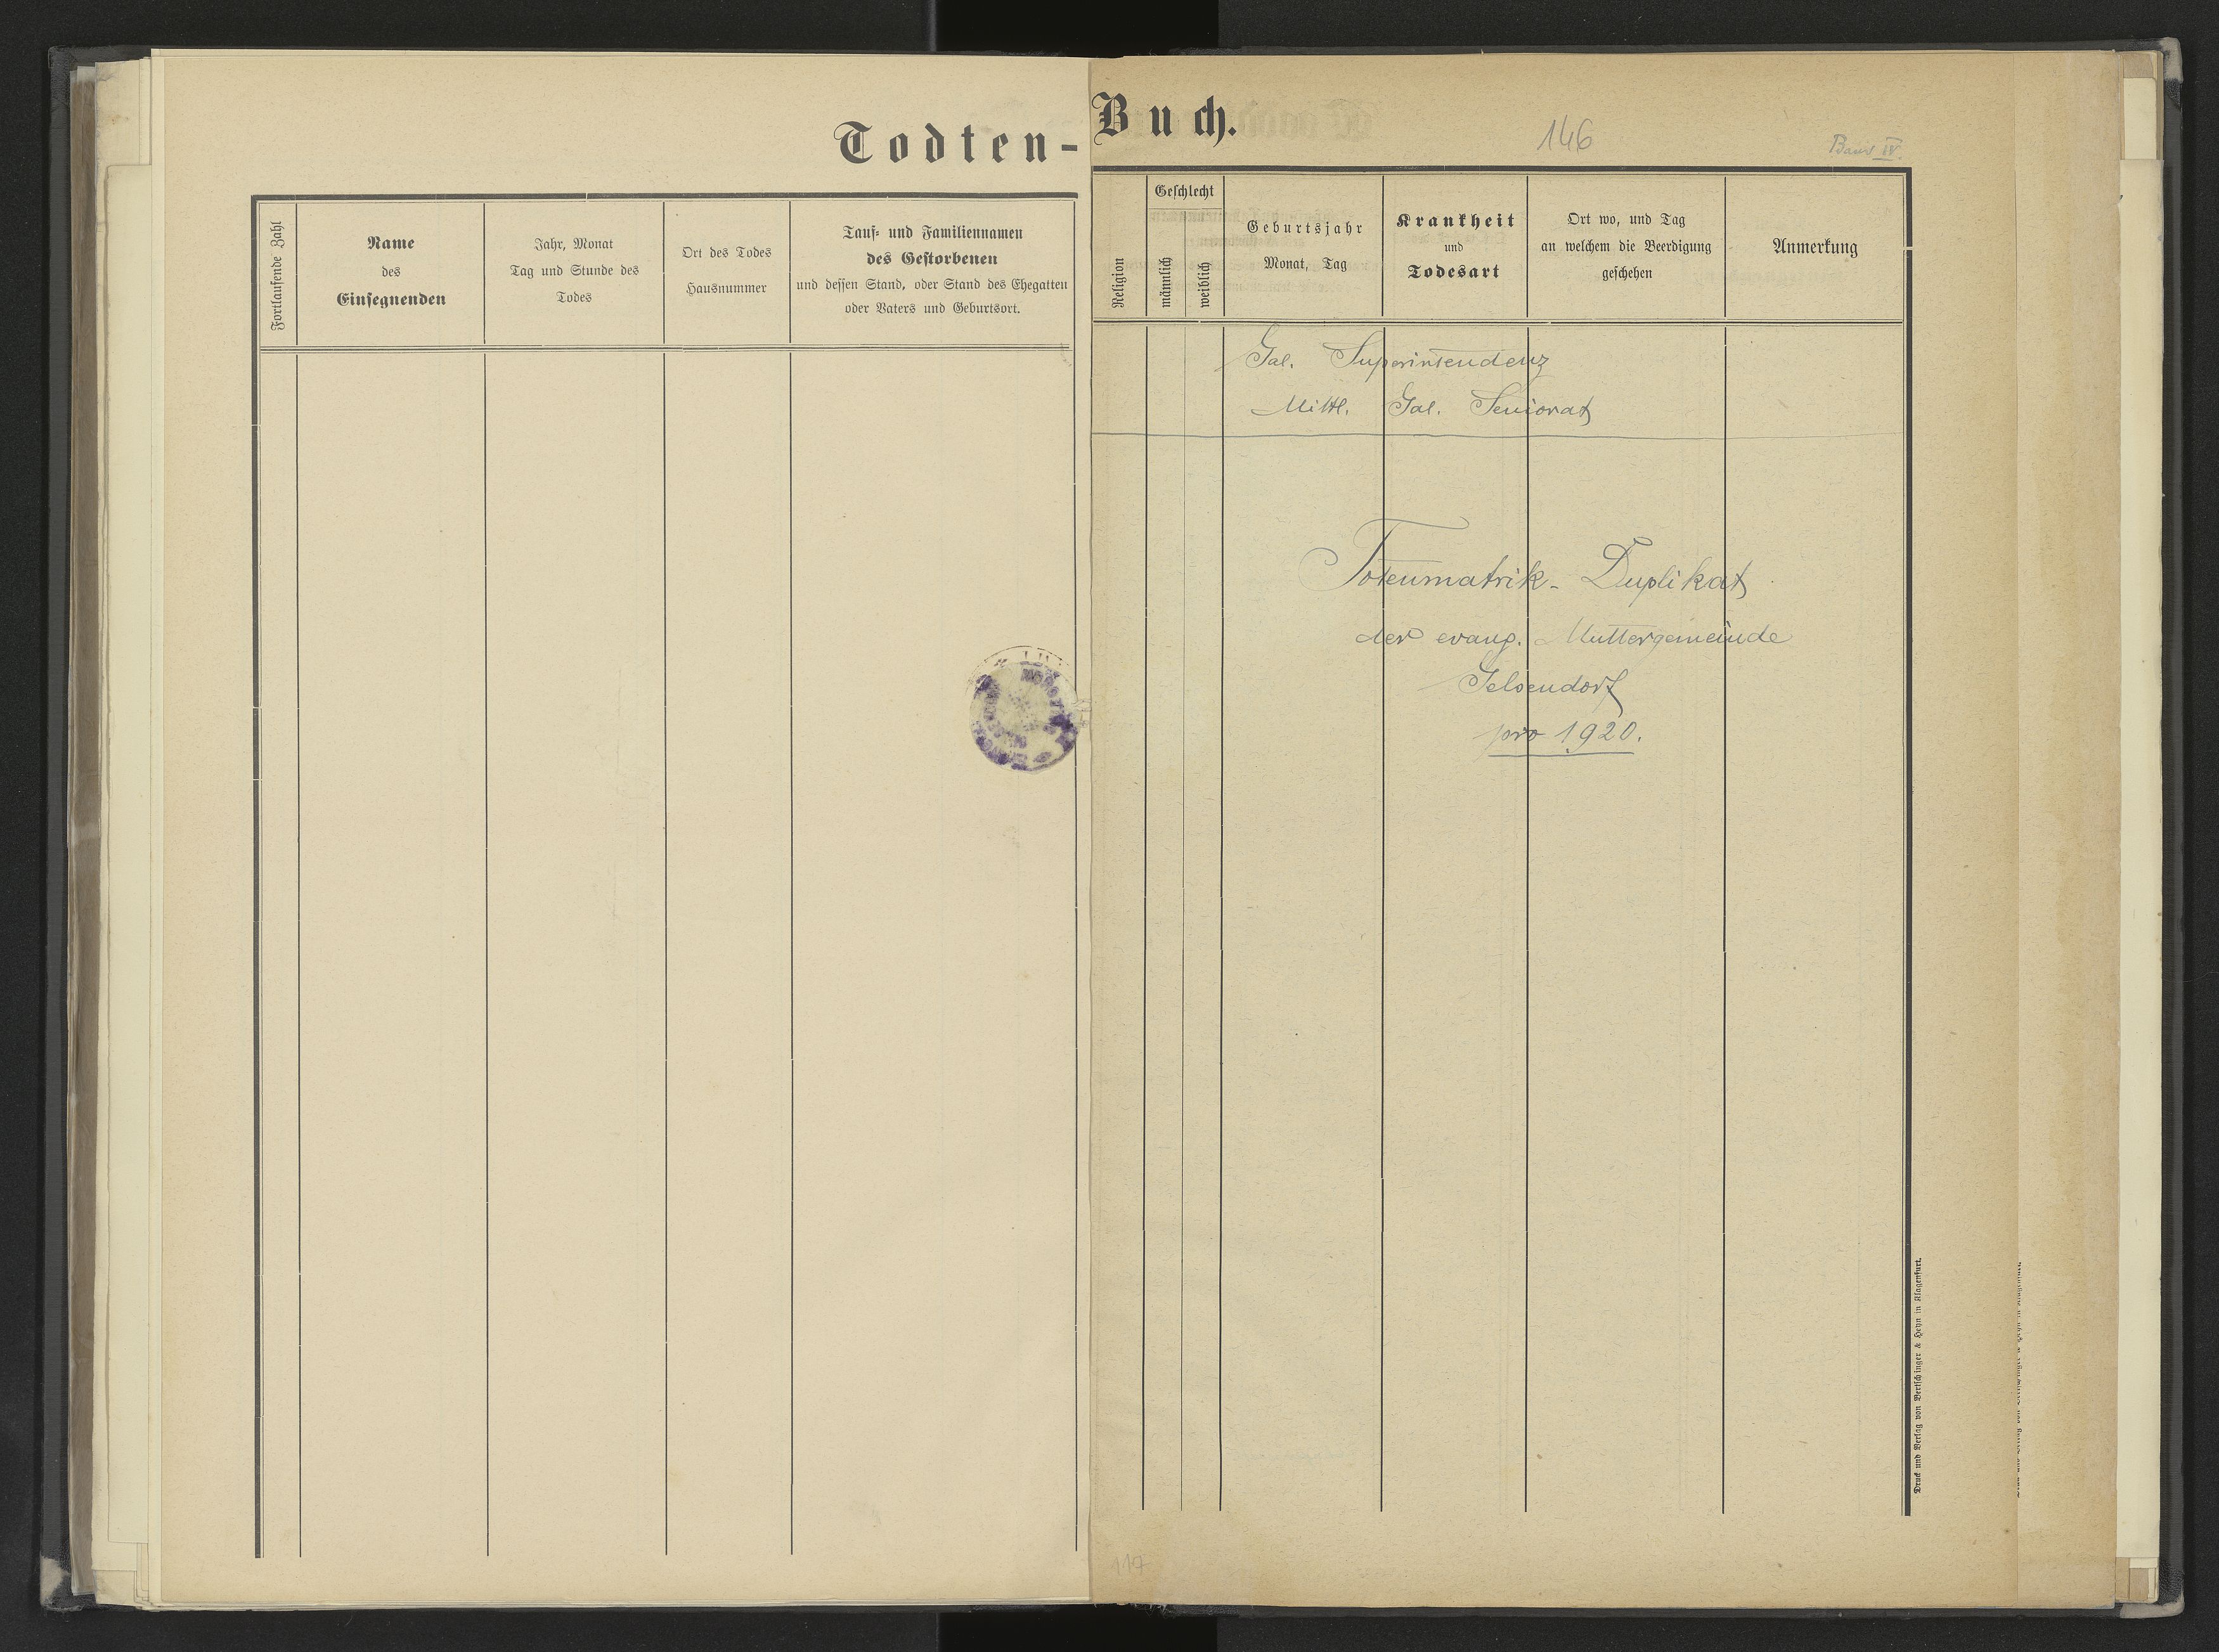 Todten-
Buch.
146
Band IV.
Fortlaufende Zahl
Name
des
Einsegnenden
Jahr, Monat
Tag und Stunde des
Todes
Ort des Todes
Hausnummer
Tauf- und Familiennamen
des Gestorbenen
und dessen Stand, oder Stand des Ehegatten
oder Vaters und Geburtsort.
Religion
Geschlecht
männlich
weiblich
Geburtsjahr
Monat, Tag
Krankheit
und
Todesart
Ort wo, und Tag
an welchem die Beerdigung
geschehen
Anmerkung
Gal. Superintendenz
Mittl. Gal. Seniorat
Totenmatrik-Duplikat
der evang. Muttergemeinde
Gelsendorf
pro 1920.
Druck und Verlag von Bertschinger & Heyn in Klagenfurt.
117